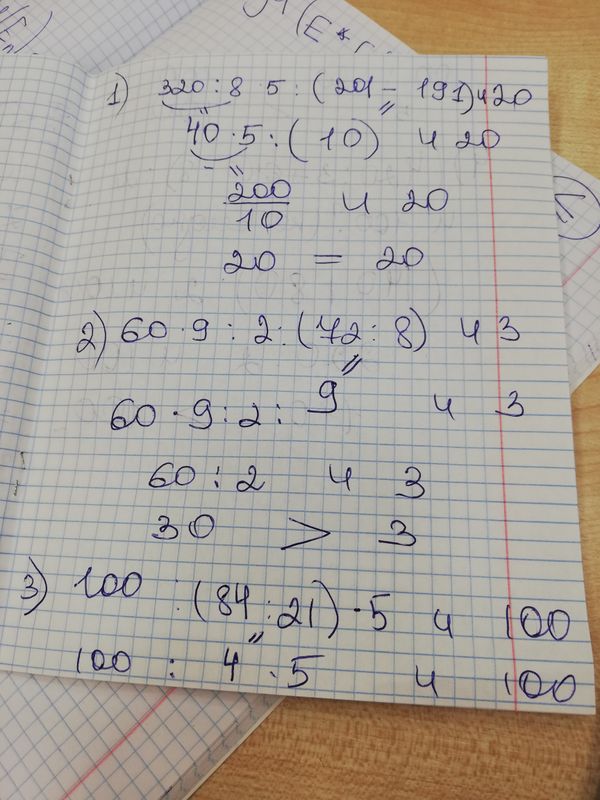 (E
1) 320 : 8 · 5 : (201 - 191) и 20
40 · 5 : (10) и 20
200
10 и 20
20 = 20
2) 60 · 9 : 2 : (72 : 8) и 3
60 · 9 : 2 : 9 и 3
60 : 2 и 3
30 > 3
3) 100 : (84 : 21) · 5 и 100
100 : 4 · 5 и 100